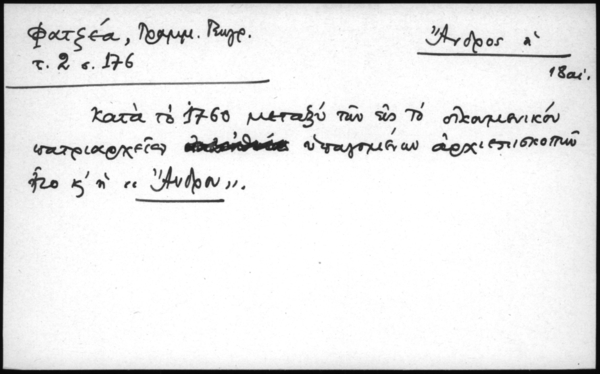 Φατζέα, Γραμμ. Γεωγρ.
τ. 2 σ. 176
Ἄνδρος ἡ
18 αἰ.
Κατὰ τὸ 1760 μεταξὺ τῶν εἰς τὸ οἰκουμενικόν
πατριαρχεῖον ὑπαγομένων ἀρχιεπισκοπῶν
ἦτο κ' ἡ «Ἄνδρου».